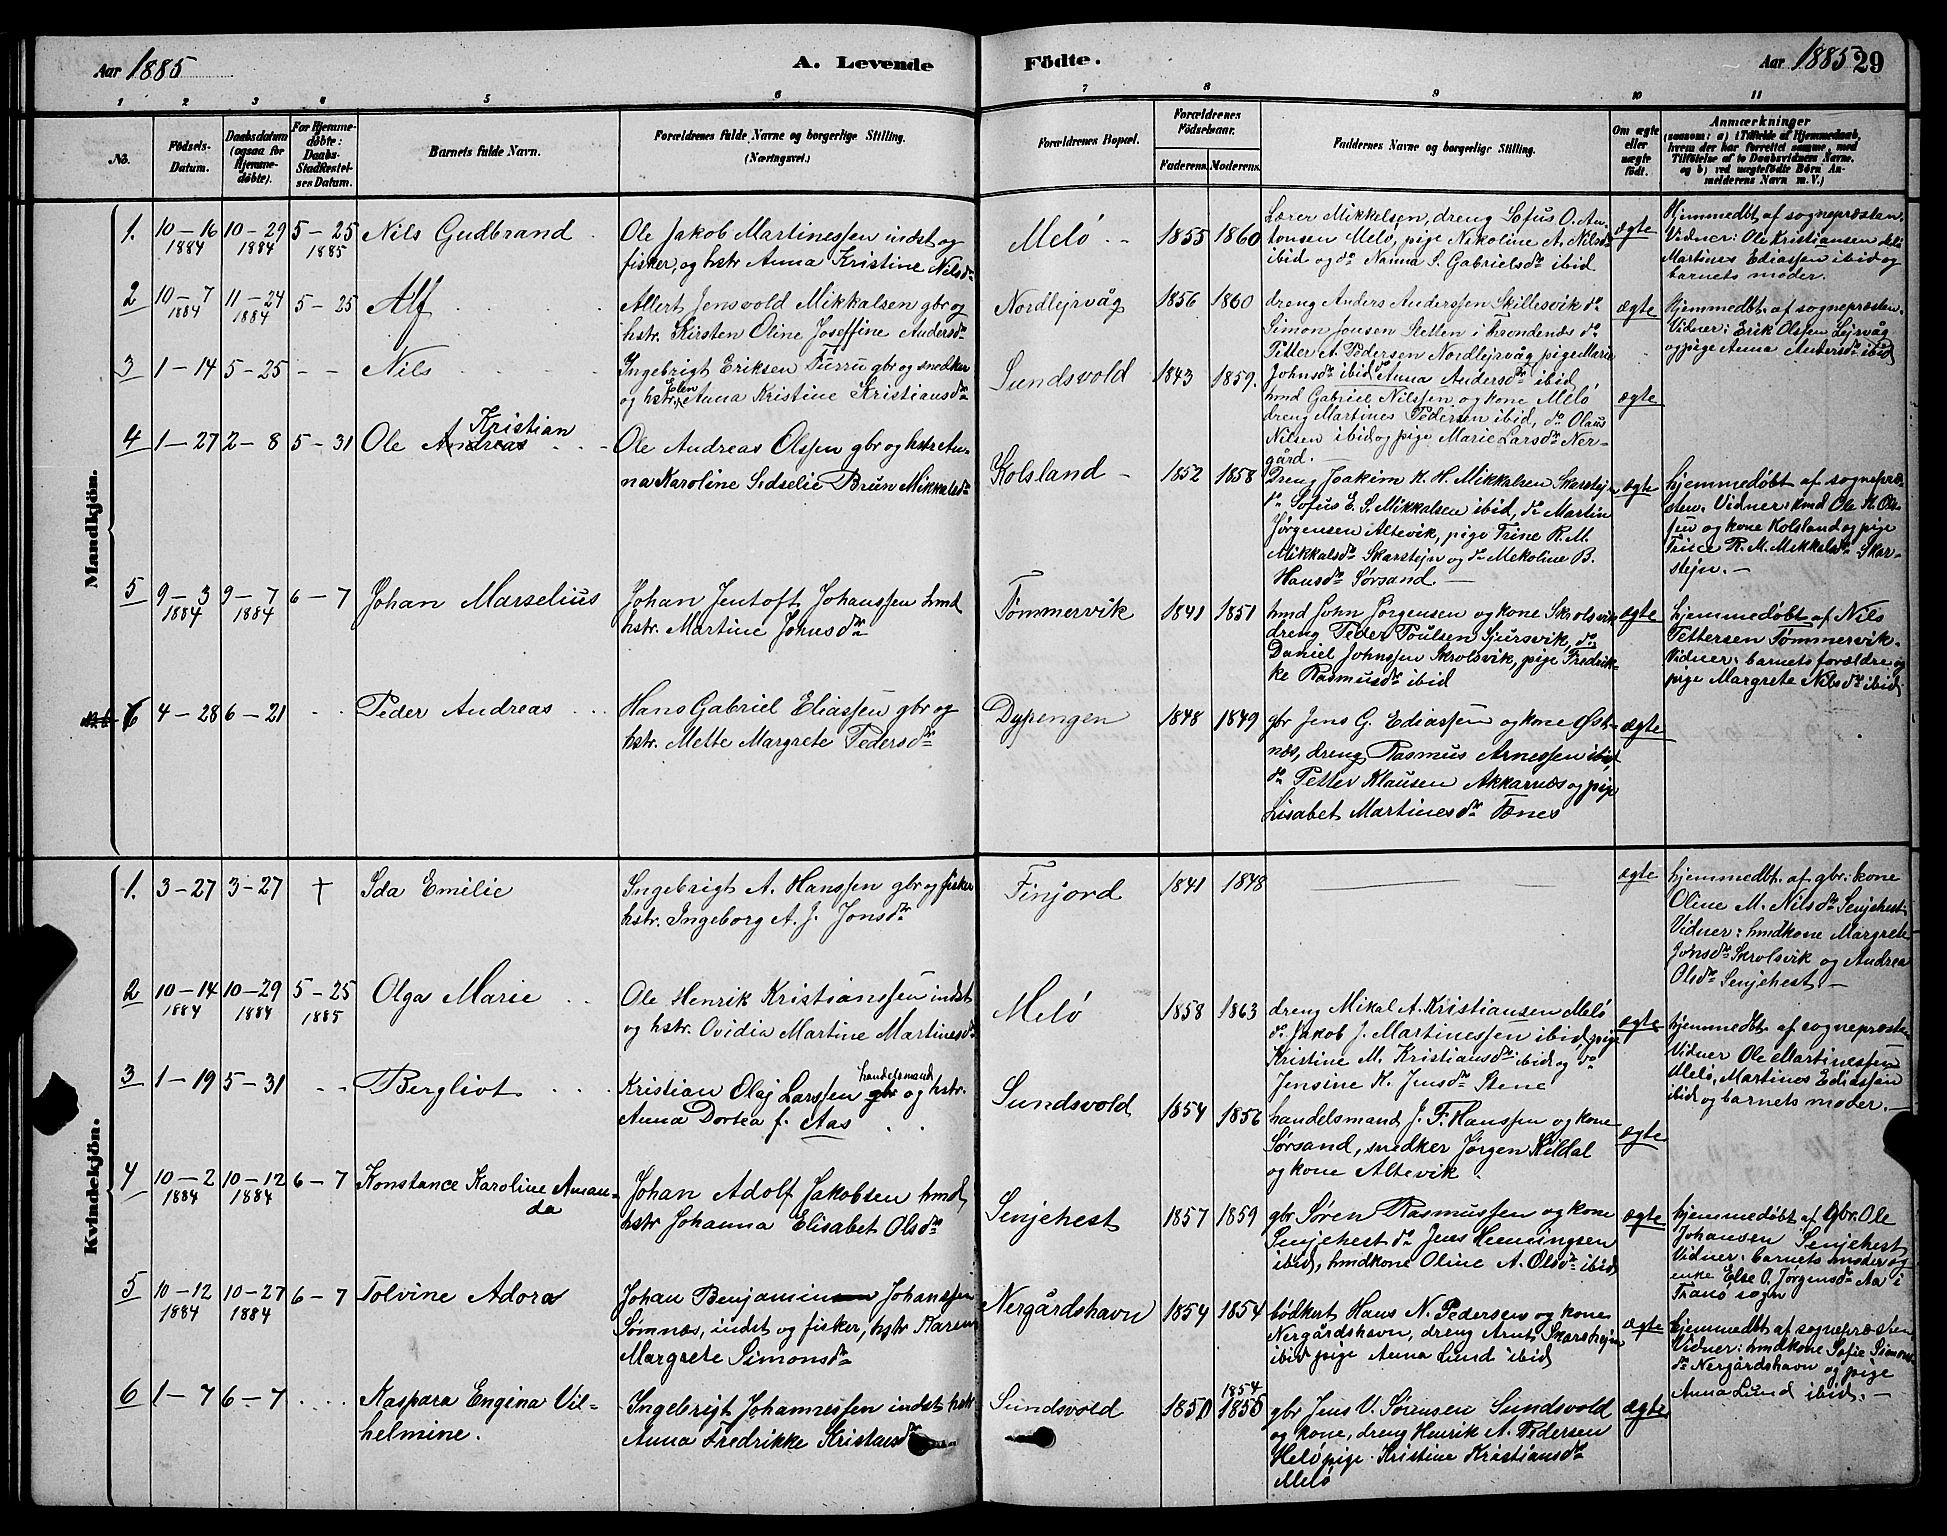 Aar 1885
A. Levende
Fødte.
Aar 1885 29
1 2 3 4 5 6 7 8 9 10 11
No.
Fødsels-
Datum.
Daabsdatum
(ogsaa for
Hjemme-
døbte).
For Hjemme-
døbte:
Daabs-
Stadfæstel-
ses Datum.
Barnets fulde Navn.
Forældrenes fulde Navne og borgerlige Stilling.
(Næringsvei.)
Forældrenes Bopæl.
Forældrenes
Fødselsaar.
Faderens. Moderens.
Faddernes Navne og borgerlige Stilling.
Om ægte
eller
uægte
født.
Anmærkninger
(saasom: a) i Tilfælde af Hjemmedaab,
hvem der har forrettet samme, med
Tilføielse af to Daabsvidners Navne.
og b) ved uægtefødte Børn An-
melderens Navn m. V.)
Mandkjön.
1. 10-16 10-29 5-25 Nils Gudbrand
1884 1884 1885
Ole Jakob Martinessen indst og
fisker, og hstr Anna Kristine Nilsdr
Melö 1855 1860
Lærer Mikkelsen, dreng Sofus O. An-
tonsen Melö, pige Nikoline A. Nilsdr
ibid og dr Nanna S. Gabrielsdr ibid
ægte
Hjemmedbt af sognepræsten.
Vidner: Ole Kristiansen Melö
Martines Ediassen ibid og
barnets moder.
2 10-7 11-24 5-25 Alf
1884 1884
Albert Jensvold Mikkalsen gbr og
hstr. Kirsten Oline Joseffine Andersdr
Nordlejrvåg 1856 1860
dreng Anders Anderssen Skillesvik dr
Simon Jonsen Stetten i Trondenæs dr
Petter A. Pedersen Nordlejrvåg pige Marie
Johnsdr ibid dr Anna Andersdr ibid
ægte
Hjemmedbt. af sognepræsten.
Vidner: Erik Olsen Lejrvåg
og pige Anna Andersdr ibid
3 1-14 5-25 - - Nils
Ingebrigt Eriksen Furru gbr og snedker
og hstr. Elen Anna Kristine Kristiansdr
Sundsvold 1843 1859.
hmd Gabriel Nilssen og kone Melö
dreng Martines Pedersen ibid, dr Olaus
Nilsen ibid og pige Marie Larsdr Ner-
gård.
ægte
4 1-27 2-8 5-31 Ole Andreas Kristian
Ole Andreas Olssen gbr og hstr An-
na Karoline Sidselie Bruun Mikkalsdr
Kolsland 1852 1858
Dreng Joakim K. H. Mikkalsen Skarstejn
dr Sofus E. S. Mikkalsen ibid, dr Martin
Jørgensen Altevik, pige Trine R. M.
Mikkalsdr Skarstejn og dr Mekoline B.
Hansdr Sørsand.
ægte
hjemmedøbt af sognepræ-
sten. Vidner: hmd Ole K. Ols-
sen og kone Kolsland og pige
Trine R. M. Mikkalsdr Skar-
stejn.
5 9-3 9-7 6-7 Johan Marselius
1884 1884
Johan Jentoft Johanssen hmd
hstr. Martine Johnsdr
Tømmervik 1841 1851
hmd John Jørgensen og kone Skrolsvik
dreng Peder Poulsen Sjursvik, dr
Daniel Johnssen Skrolsvik, pige Fredrik-
ke Rasmusdr ibid
ægte
hjemmedøbt af Nils
Pettersen Tømmervik.
Vidner: barnets forældre og
pige Margrete Nilsdr ibid
6 4-28 6-21 - - Peder Andreas
Hans Gabriel Eliassen gbr og
hstr. Mette Margrete Pedersdr
Dypengen 1848 1849
gbr Jens G. Ediassen og kone Øst-
næs, dreng Rasmus Arnessen ibid
dr Petter Klausen Akkarnæs og pige
Lisabet Martinesdr Tønes
ægte
Kvindekjön.
1. 3-27 3-27 † Ida Emilie
Ingebrigt A. Hanssen gbr og fisker
hstr. Ingeborg A. J. Jonsdr
Finjord 1841 1848
ægte
hjemmedbt. af gbr. kone
Oline M. Nilsdr Senjehest
Vidner: hmdkone Margrete
Jonsdr Skrolsvik og Andrea
Olsdr Senjehest
2 10-14 10-29 5-25 Olga Marie
1884 1884 1885
Ole Henrik Kristianssen indst
og hstr. Ovidia Martine Martinesdr
Melö 1858 1863
dreng Mikal A. Kristiansen Melö
dr Jakob J. Martinessen ibid pige
Kristine M. Kristiansdr ibid og dr
Jensine K. Jensdr Stene
ægte
hjemmedbt af sognepræsten
Vidner Ole Martinessen
Melö, Martines Ediassen
ibid og barnets moder.
3 1-19 5-31 - - Bergliot
Kristian Olaj Larssen gbr handelsmand og hstr.
Anna Dortea f. Aas
Sundsvold 1854 1856
handelsmand J. F. Hanssen og kone
Sørsand, snedker Jørgen Kildal
og kone Altevik.
ægte
4 10-2 10-12 6-7 Konstance Karoline Aman-
1884 1884 da
Johan Adolf Jakobsen hmd
hstr Johanna Elisabet Olsdr
Senjehest 1857 1859
gbr Søren Rasmussen og kone
Senjehest dr Jens Henningsen
ibid, hmdkone Oline A. Olsdr ibid
ægte
hjemmedøbt af Gbr. Ole
Johansen Senjehest
Vidner: barnets moder og
enke Else O. Jørgensdr Aa i
Tranö sogn
5 10-12 10-27 6-7 Tolvine Adora
1884 1884
Johan Benjamin Johanssen
Sømnæs, indst og fisker, hstr Karen
Margrete Simonsdr
Nergårdshavn 1854 1854
bødkert Hans N. Pedersen og kone
Nergårdshavn, dreng Arnt Skarstejn
ibid pige Anna Lund ibid
ægte
hjemmedbt af sognepræsten
Vidner: hmdkone Sofie Simons-
dr Nergårdshavn og pige
Anna Lund ibid.
6 1-7 6-7 Kaspara Engina Vil-
helmine.
Ingebrigt Johannessen indst hstr
Anna Fredrikke Kristiansdr
Sundsvold 1850 1854 1855
gbr Jens V. Sørensen Sundsvold
og kone, dreng Henrik A. Pedersen
Melö pige Kristine Kristiansdr
Melö
ægte